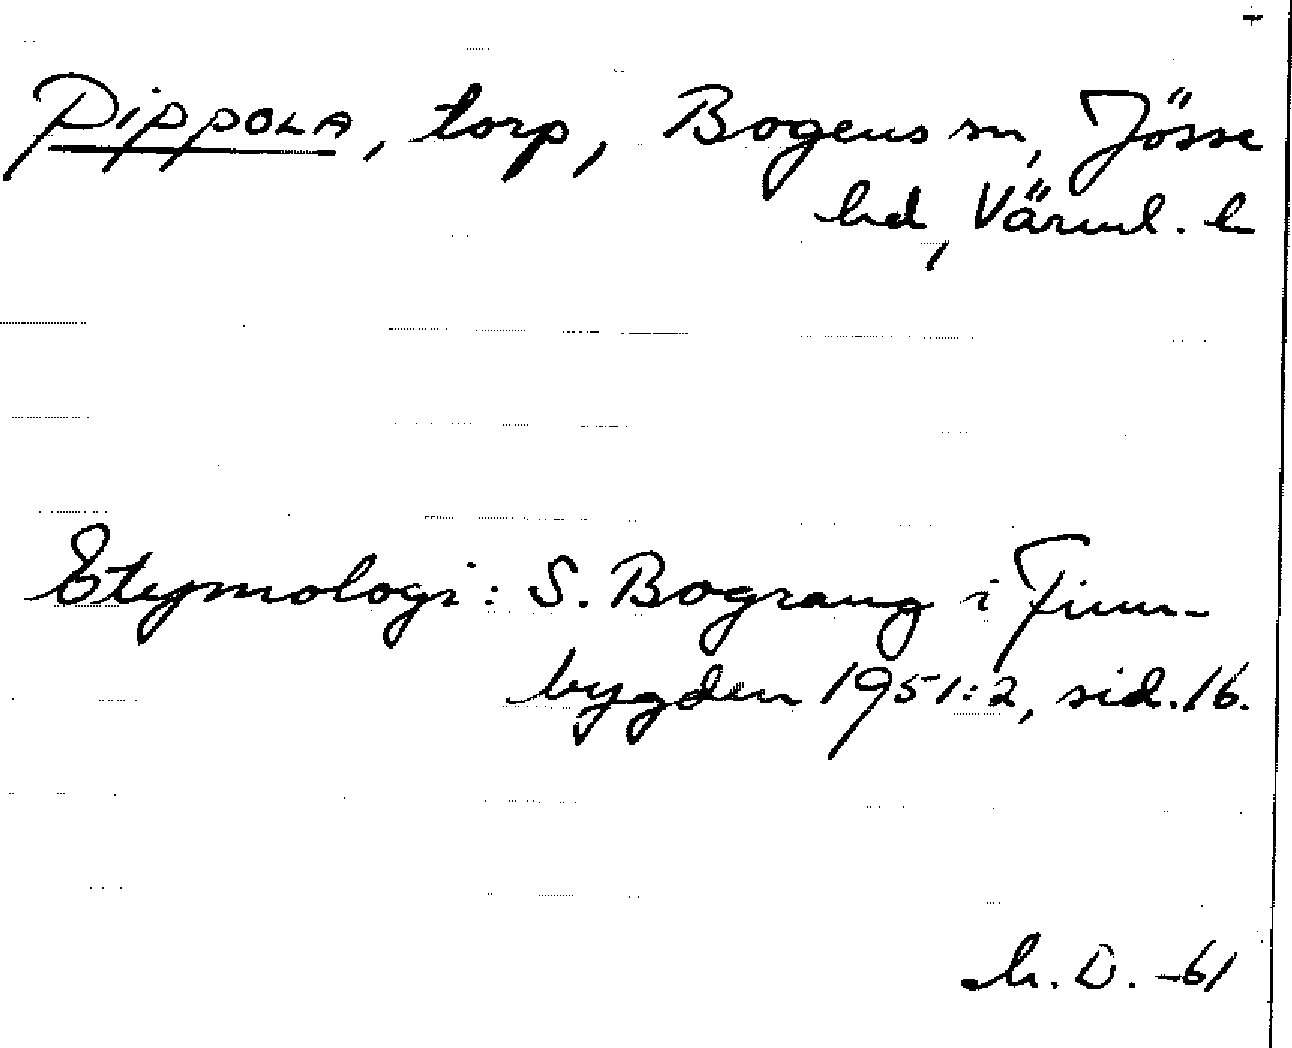 Pippola, torp, Bogens sn, Jösse
hd, Värml. l.
Etymologi: S. Bograng i Finn-
bygden 1951:2, sid. 16.
h. D. -61